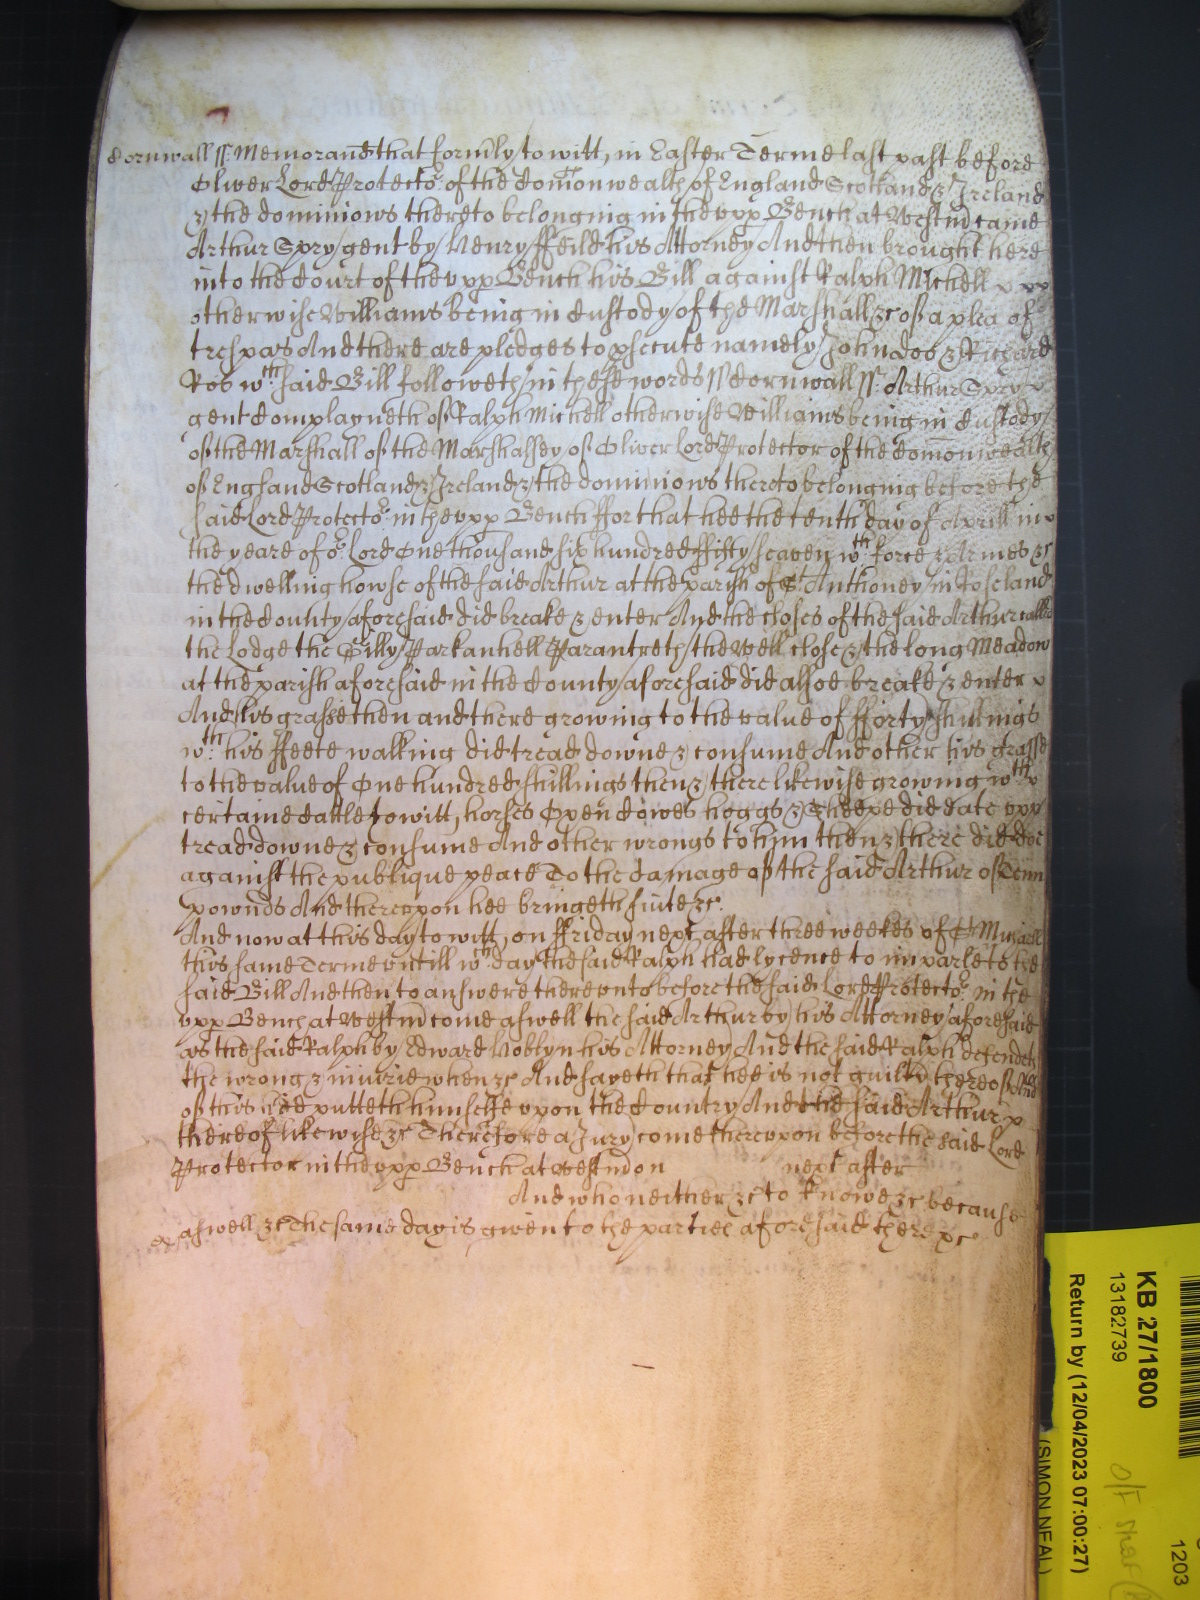 Cornwall ss. Memorand that formly to witt, in Easter Terme last past before
Oliver Lord Protector of the Comonwealth of England Scotland & Ireland
& the dominions thereto belonging in the upp Bench at Westm came
Arthur Spry gent by Henry ffeild his Attorney And then brought here
into the Court of the upp Bench his Bill against Ralph Michell
otherwise Williams being in Custody of the Marshall &c of a plea of
trespas And there are pledges to psecute namely John doo & Richard
Roo wch said Bill followeth in these words ss Cornwall ss. Arthur Spry
gent Complayneth of Ralph Michell otherwise Williams being in Custody
of the Marshall of the Marshalsey of Oliver Lord Protector of the Comonwealth
of England Scotland & Ireland & the dominions thereto belonging before the
said Lord Protector in the upp Bench ffor that hee the tenth day of Aprill in
the yeare of or Lord One thousand six hundred ffifty seaven wth force & Armes &c
the dwelling howse of the said Arthur at the parish of St Anthoney in Roseland
in the County aforesaid did breake & enter And the closes of the said Arthur called
the Lodge the Gilly Parkanhell Parantreth the Well close & the long Meadow
at the parish aforesaid in the County aforesaid did alsoe breake & enter
And his grasse then and there growing to the value of fforty shillings
wth his ffeete walking did tread downe & consume And other his grasse
to the value of One hundred shillings then & there likewise growing wth
certaine Cattle to witt, horses Oxen Cowes hoggs & Sheepe did eate upp
tread downe & consume And other wrongs to him then & there did doe
against the publique peace To the damage of the said Arthur of Tenn
pownds And thereupon hee bringeth suite &c.
And now at this day to witt, on ffriday next after three weekes of St Michaell
this same Terme untill wch day the said Ralph had lycence to imparle to the
said Bill And then to answere thereunto before the said Lord Protector in the
upp Bench at Westm come aswell the said Arthur by his Attorney aforesaid
as the said Ralph by Edward Noblyn his Attorney And the said Ralph defendeth
the wrong & iniurie when &c And sayeth that hee is not guilty thereof And
of this hee putteth himselfe upon the Country And the said Arthur
thereof likewise &c Therefore a Jury come thereupon before the said Lord
Protector in the upp Bench at Westm on next after
And who neither &c to knowe &c because
aswell &c The same day is given to the parties aforesaid there &c
KB 27/1800
13182739
Return by (12/04/2023 07:00:27)
(SIMON NEAL)
1203